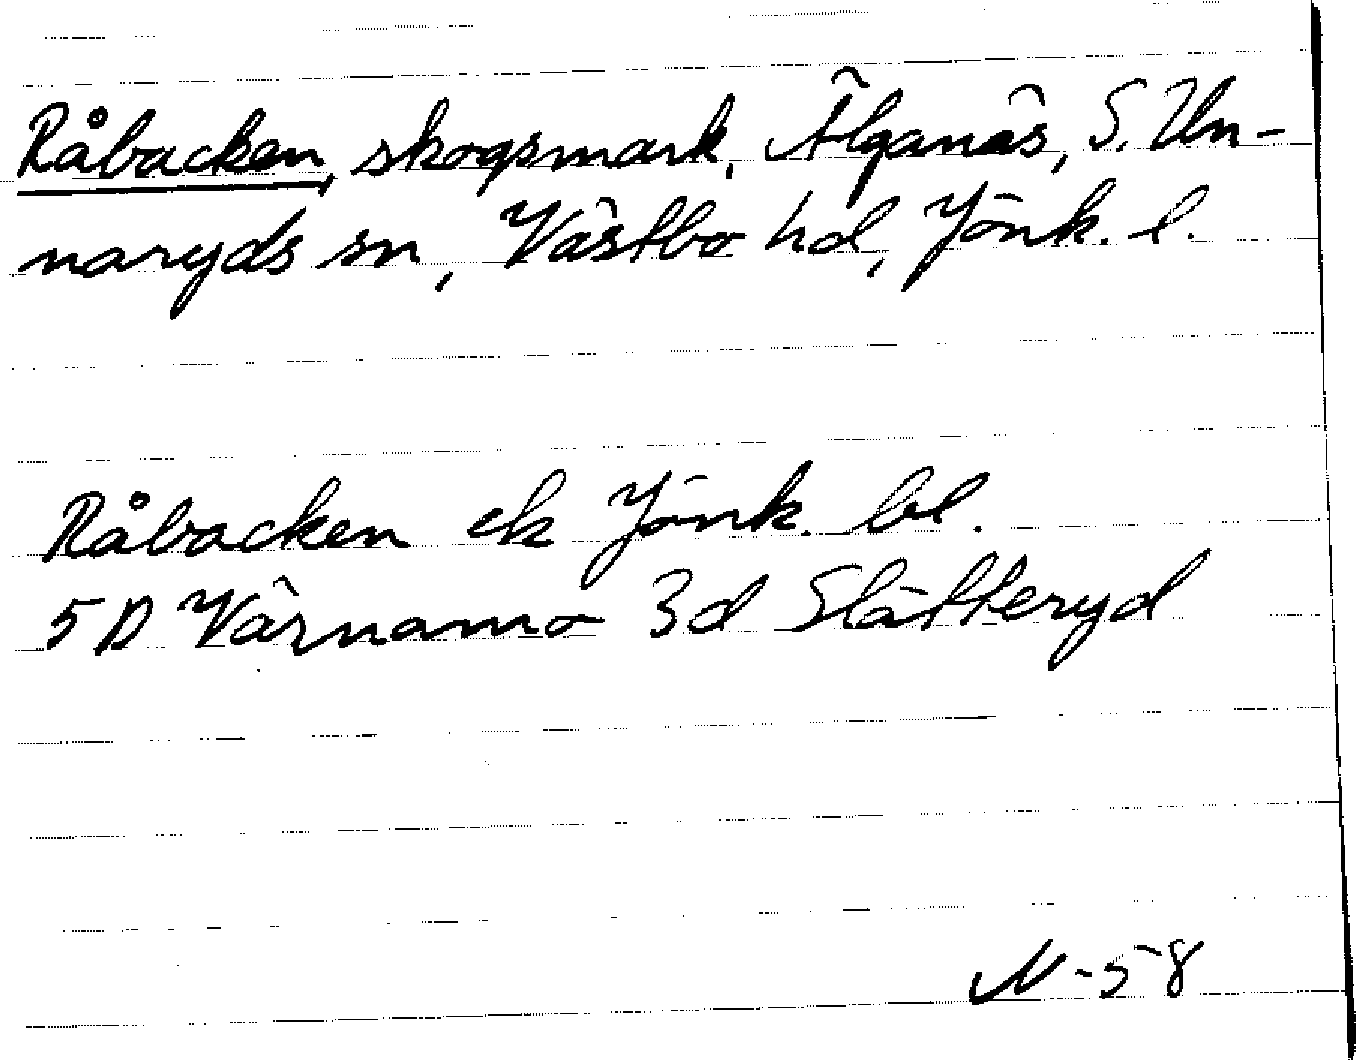 Råbacken, skogsmark, Älganäs, S. Un-
naryds sn, Västbo hd, Jönk. l.
Råbacken ek Jönk. bl.
5D Värnamo 3d Slätteryd
N-58